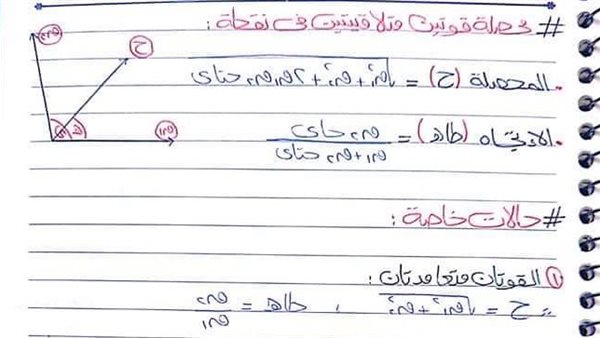 # محصلة قوتين متلاقيتين في نقطة :
• المحصلة (ح) = √ق₁² + ق₂² + ٢ق₁ق₂ حتاى
• الاتجاه (طاهـ) = ق₂ حاى / ق₁ + ق₂ حتاى
ق₂
ح
ى هـ
ق₁
# حالات خاصة :
① القوتان متعامدتان :
∴ ح = √ق₁² + ق₂² ، طاهـ = ق₂ / ق₁